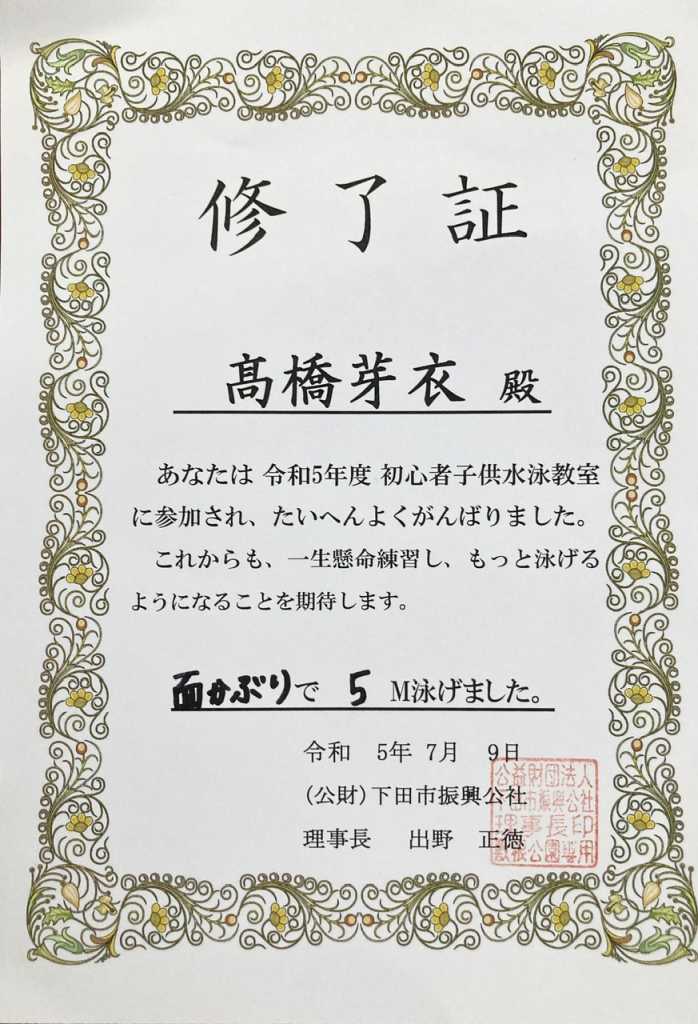 修了証
髙橋芽衣 殿
あなたは 令和5年度 初心者子供水泳教室
に参加され、たいへんよくがんばりました。
これからも、一生懸命練習し、もっと泳げる
ようになることを期待します。
面かぶりで 5 M泳げました。
令和 5年 7月 9日
(公財)下田市振興公社
理事長 出野 正徳
公益財団法人
下田市振興公社
理事長印
敷根公園専用